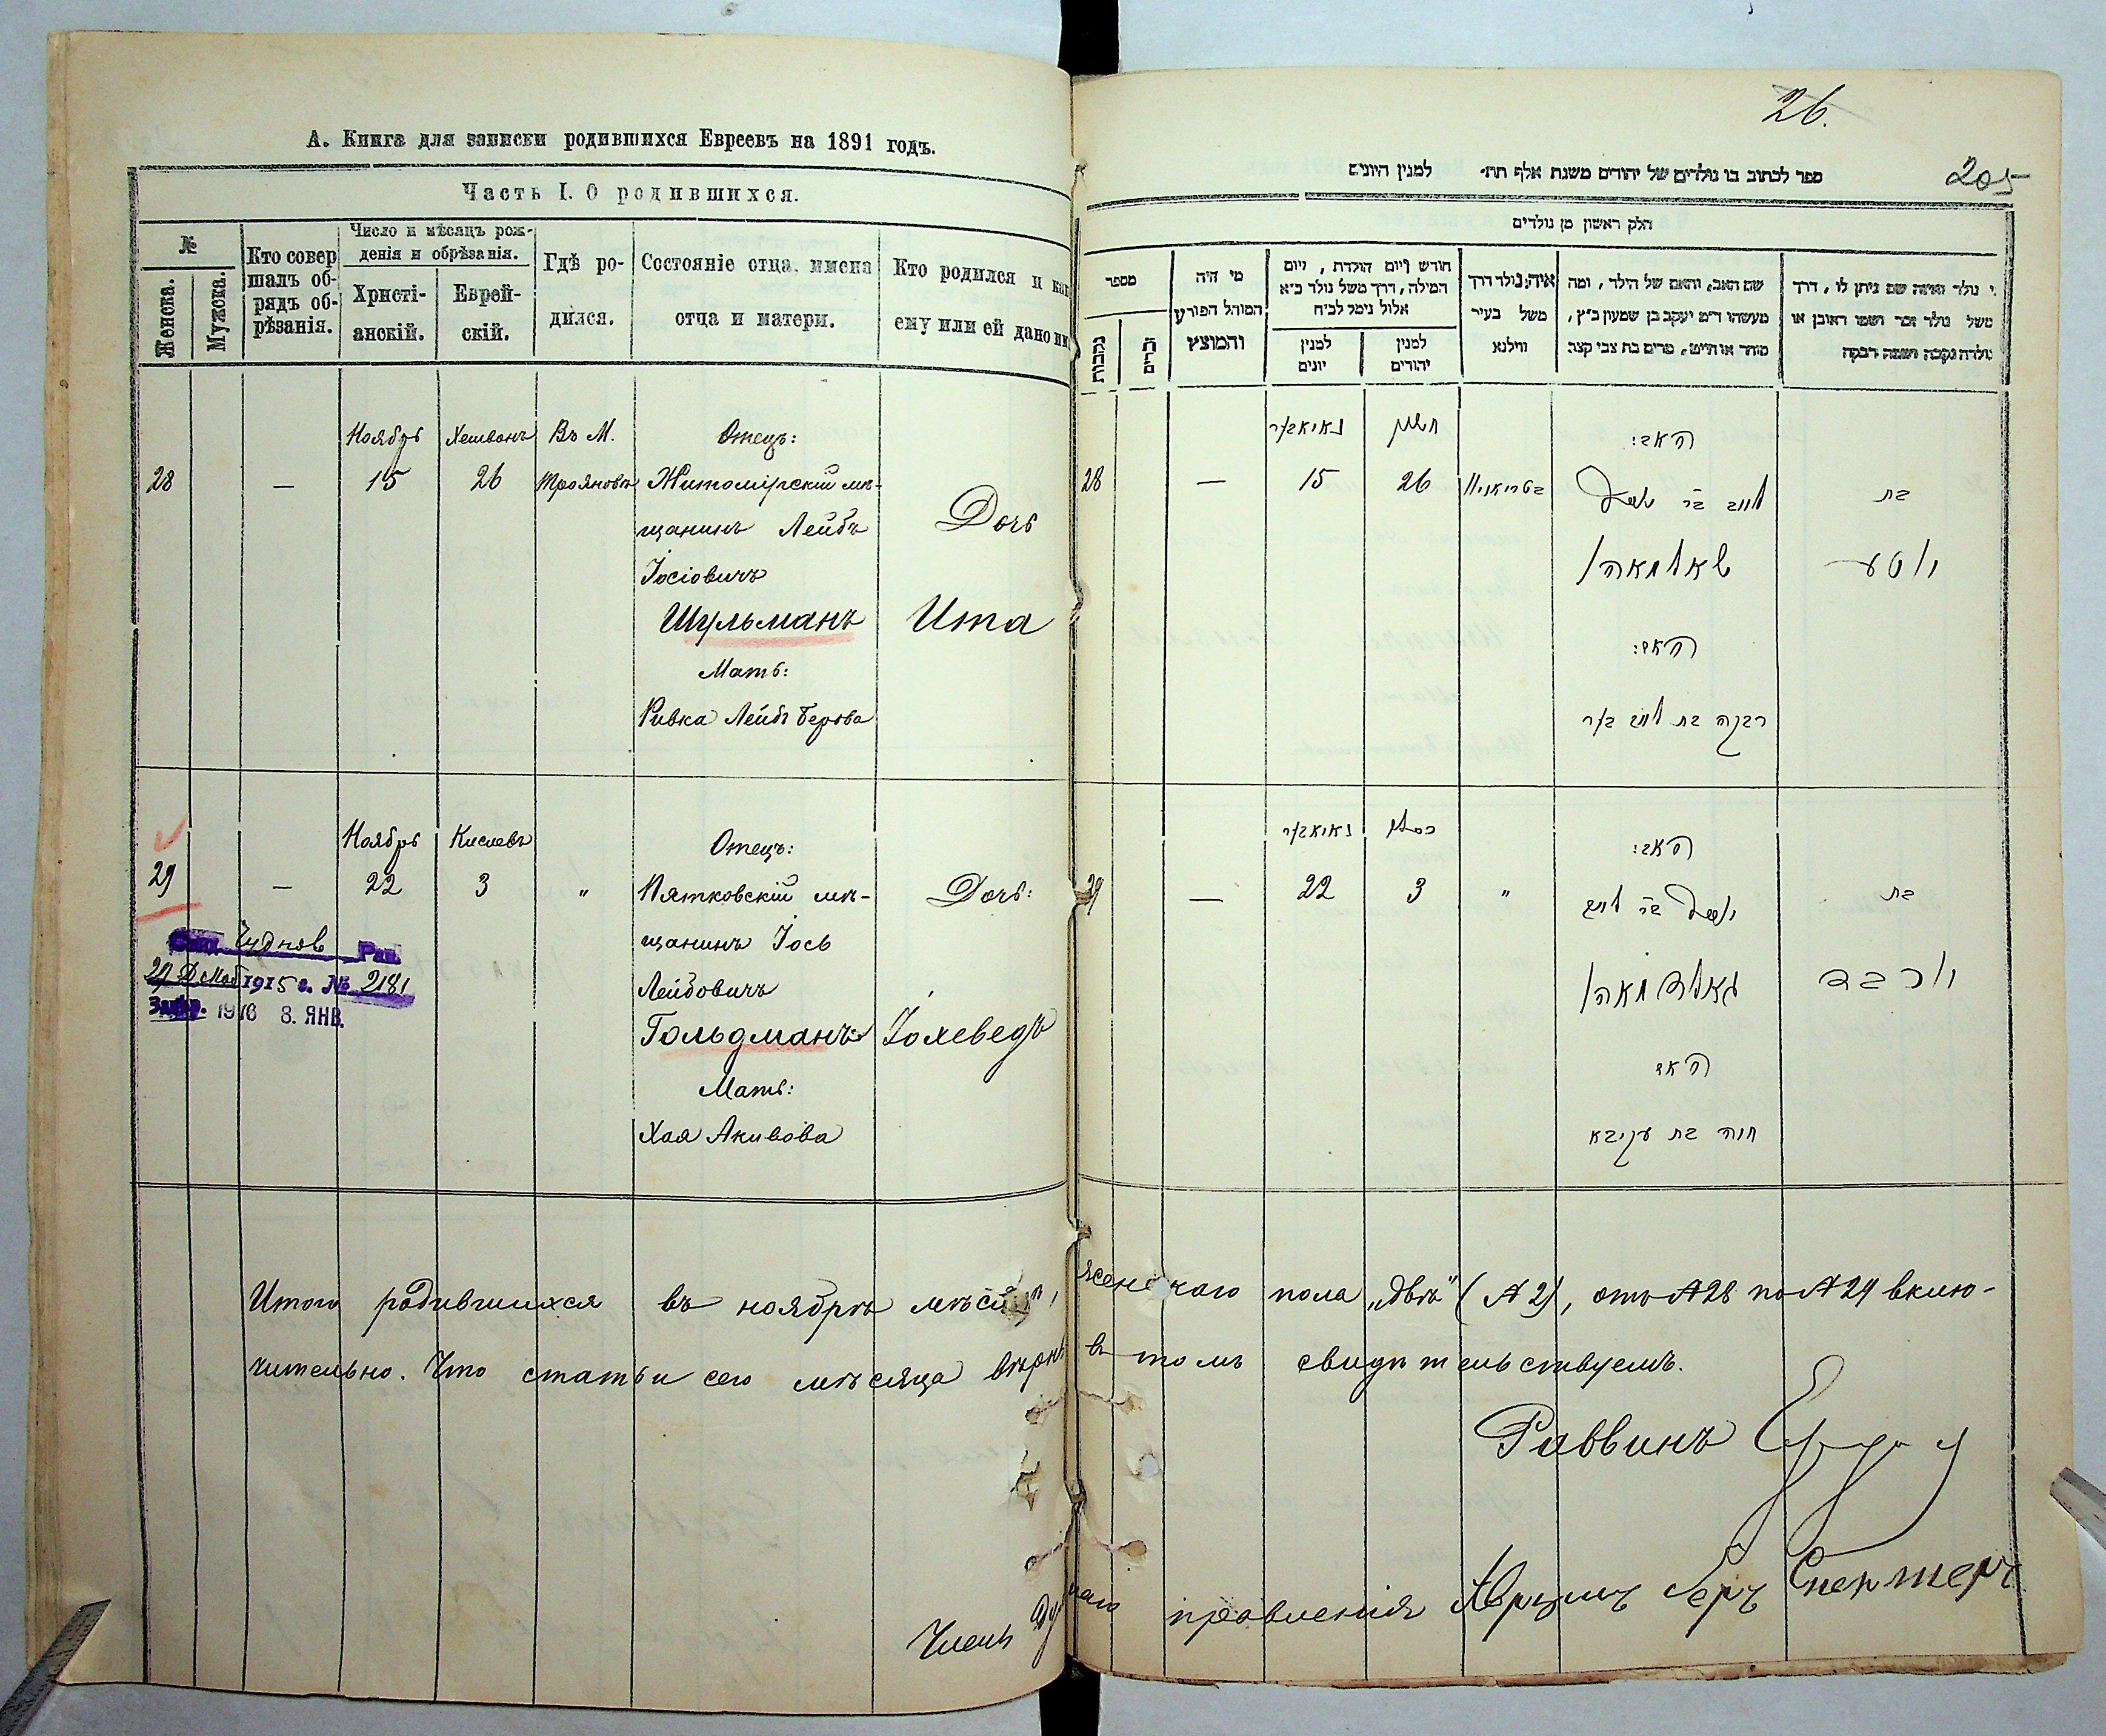 А. Книга для записки родившихся Евреевъ на 1891 годъ.
Часть I. О родившихся.
№
Женска.
Мужска.
Кто совер
шалъ об-
рядъ об-
рѣзанія.
Число и мѣсяцъ рож-
денія и обрѣзанія.
Христі-
анскій.
Еврей-
скій.
Гдѣ ро-
дился.
Состояніе отца, имена
отца и матери.
Кто родился и как
ему или ей дано им
Ноябрь Хешванъ Въ М. Отецъ:
28 — 15 26 Трояновѣ Житомірскій мѣ-
щанинъ Лейбъ
Іосіовичъ
Шульманъ
Мать:
Ривка Лейбъ Берова
Дочь
Ита
Ноябрь Кислевъ Отецъ:
29 — 22 3 „ Пятковскій мѣ-
щанинъ Іось
Лейбовичъ
Гольдманъ
Мать:
Хая Акивова
Дочь:
Іохеведъ
Чуднов Рав.
1915 г. № 2181
1916 8. ЯНВ.
26.
205
ספר לכתוב בו נולדים של יהודים משנת אלף תת׳ למנין היונים
חלק ראשון מן נולדים
מספר
נקבות
זכרים
מי היה
המוהל הפורע
והמוצץ
חודש ויום הולדת, ויום
המילה, דרך משל נולד כ״א
אלול נימל לכ״ח
למנין
יונים
למנין
יהודים
איה נולד דרך
משל בעיר
ווילנא
שם האב, והאם של הילד, ומה
מעשהו ד״מ יעקב בן שמעון כ״ץ,
סוחר או חייט, מרים בת צבי קצב
מי נולד ואיזה שם ניתן לו, דרך
משל נולד זכר ושמו ראובן או
נולדה נקבה ושמה רבקה
נאיאבער חשון האב:
28 — 15 26 לייב בר יוסף
שאלמאן
האם:
רבקה בת לייב בער
בת
יטע
נאיאבער כסלו האב:
29 — 22 3 " יוסף בר לייב
גאלדמאן
האם
חיה בת עקיבא
בת
יוכבד
Итого родившихся въ ноябрѣ мѣсяцѣ, женскаго пола „двѣ" (№ 2), отъ № 28 по № 29 вклю-
чительно. Что статьи сего мѣсяца вѣрны въ томъ свидѣтельствуемъ.
Раввинъ
Членъ Духовнаго правленія Абрумъ Беръ